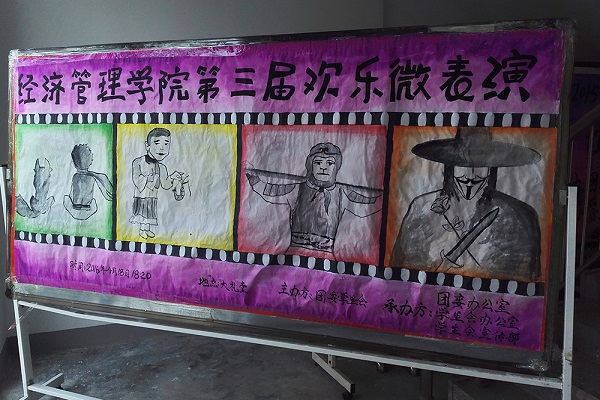 经济管理学院第三届欢乐微表演
时间:2016年4月18日18:20
地点:大礼堂
主办方:团委学生会
承办方:团委办公室
学生会办公室
学生会宣传部